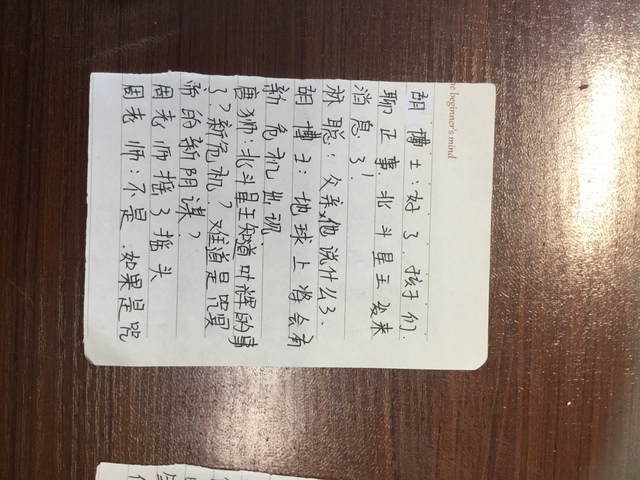 the beginner's mind
胡博士:好了,孩子们.
聊正事,北斗星王发来
消息了!
林聪:父亲,他说什么了.
胡博士:地球上将会有
新危机出现.
唐狮:北斗星王知道叶辉的事
了?新危机?难道是咒冥
新的新阴谋?
周老师摇了摇头
周老师:不是.如果是咒